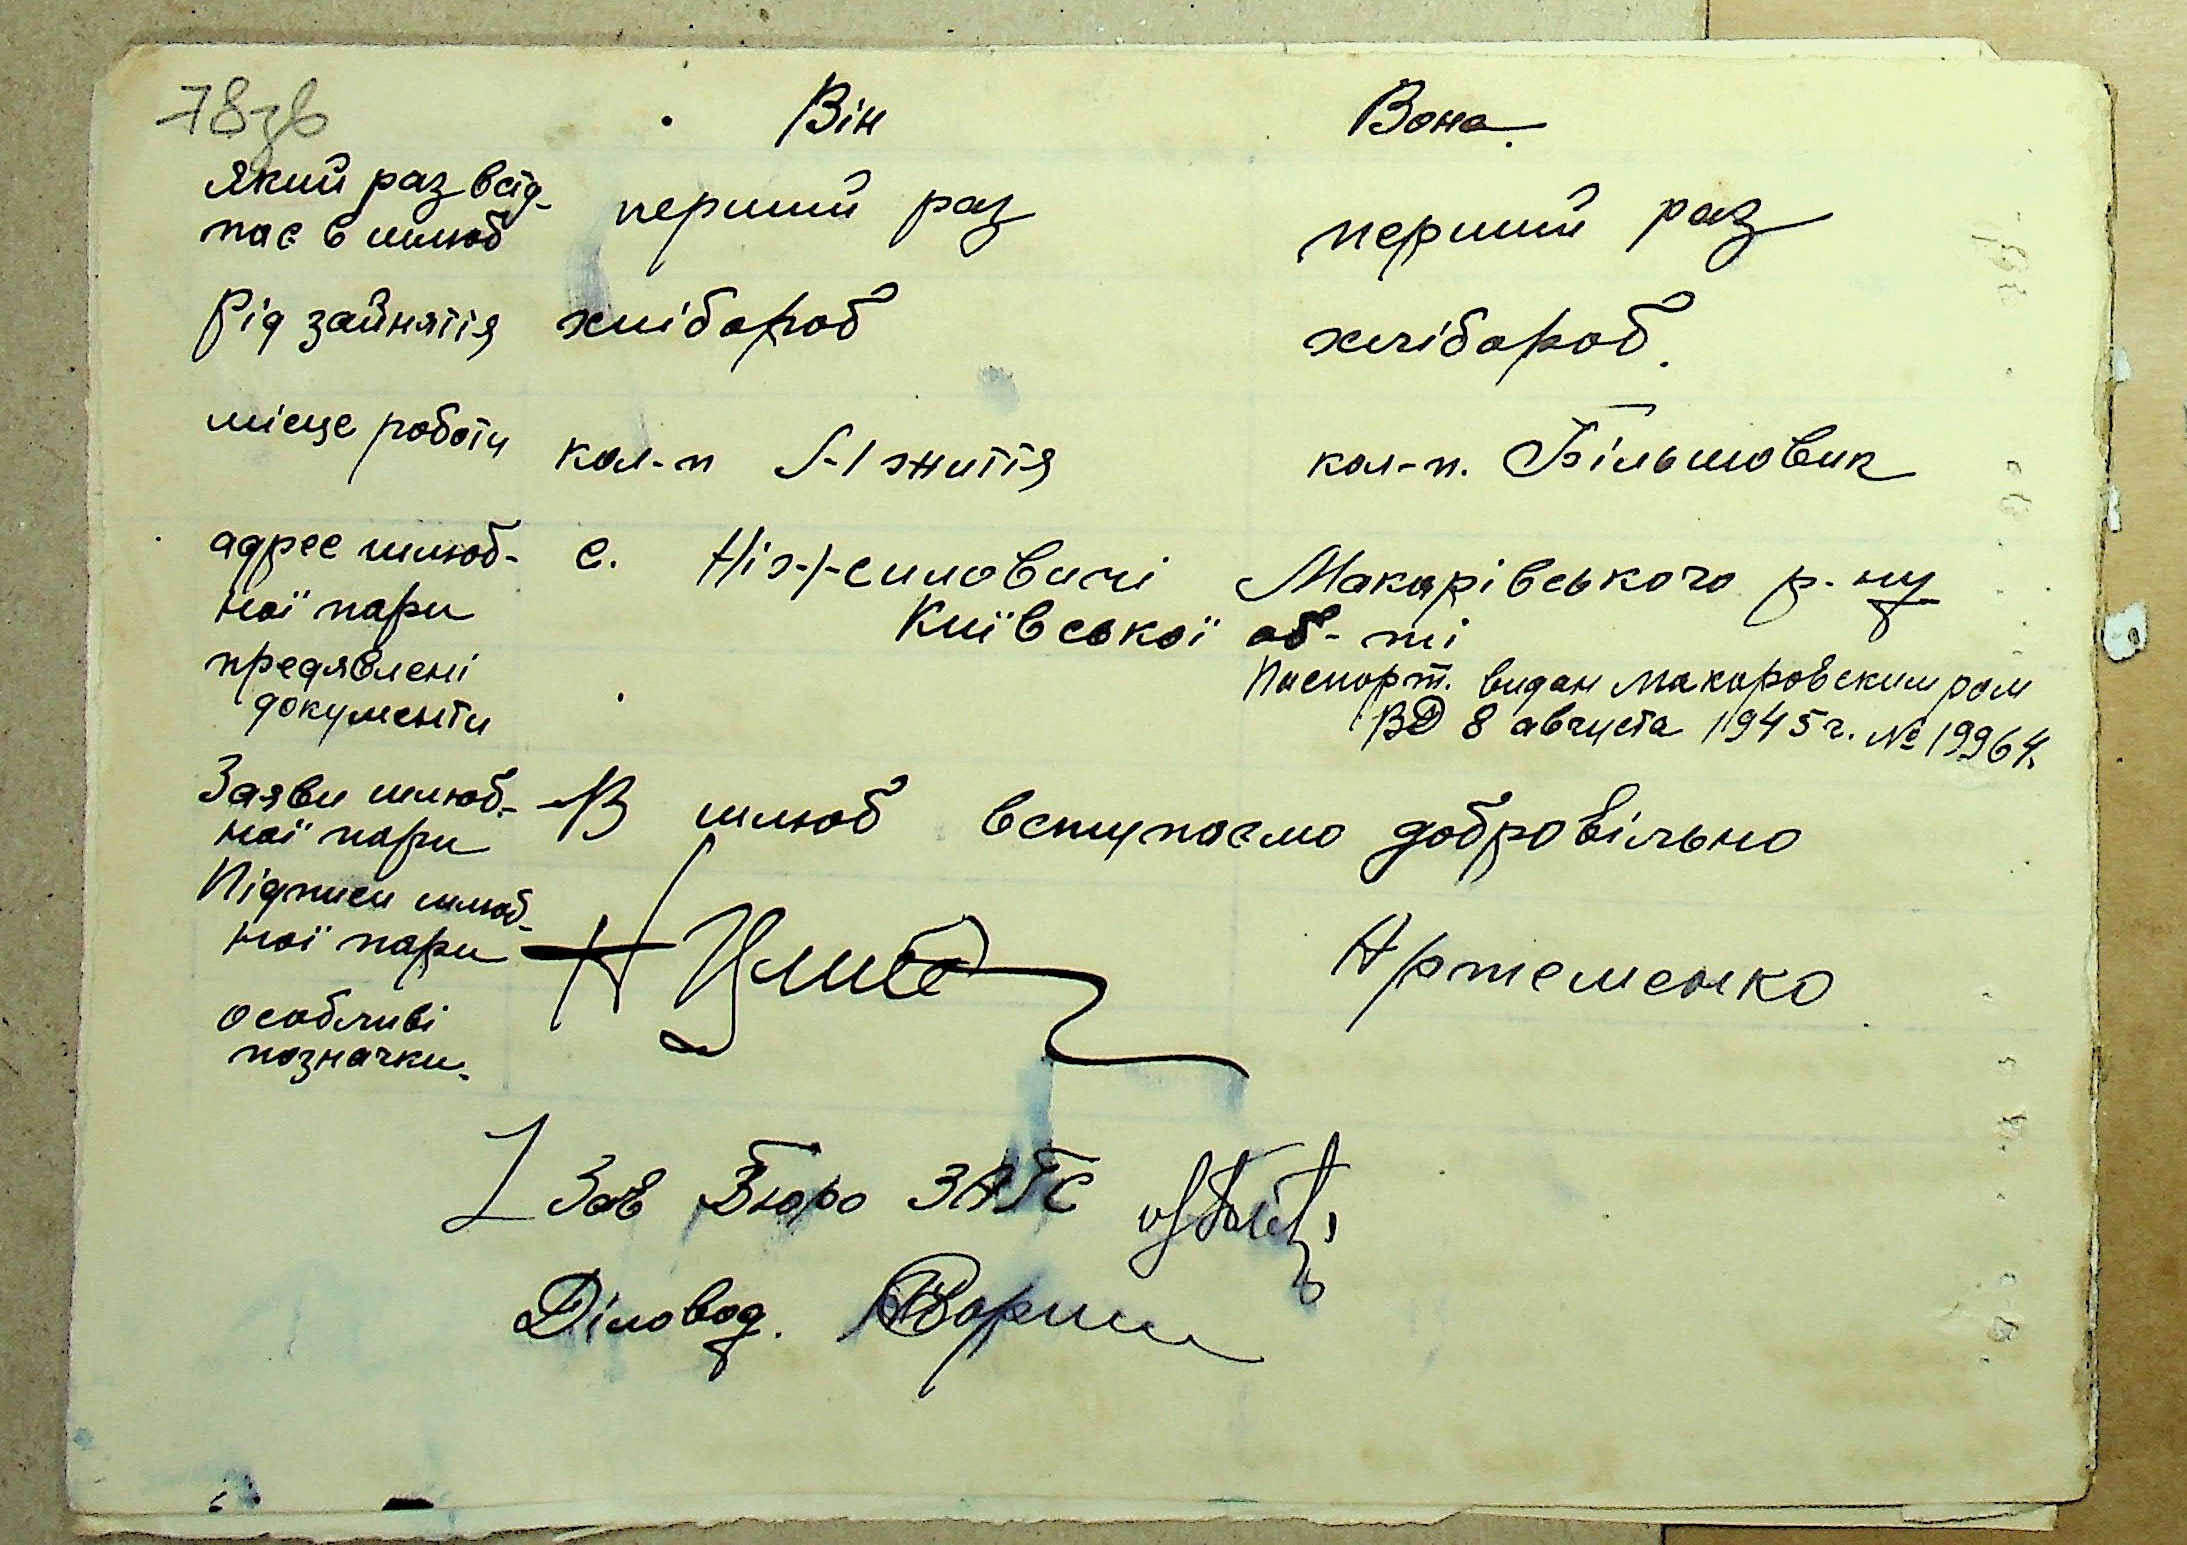 78зв
Він Вона
який раз всту-
пає в шлюб перший раз перший раз
Рід зайняття хлібороб хлібороб.
місце роботи кол-п життя кол-п. Більшовик
адрес шлюб- с. Макарівського р-ну
ної пари Київської об-ті
предявлені Паспорт. видан Макаровским ром
документи ВД 8 августа 1945 г. № 19964.
Заяви шлюб- В шлюб вступаємо добровільно
ної пари
Підписи шлюб-
ної пари Артеменко
особливі
позначки.
Зав Бюро ЗАГС
Діловод.